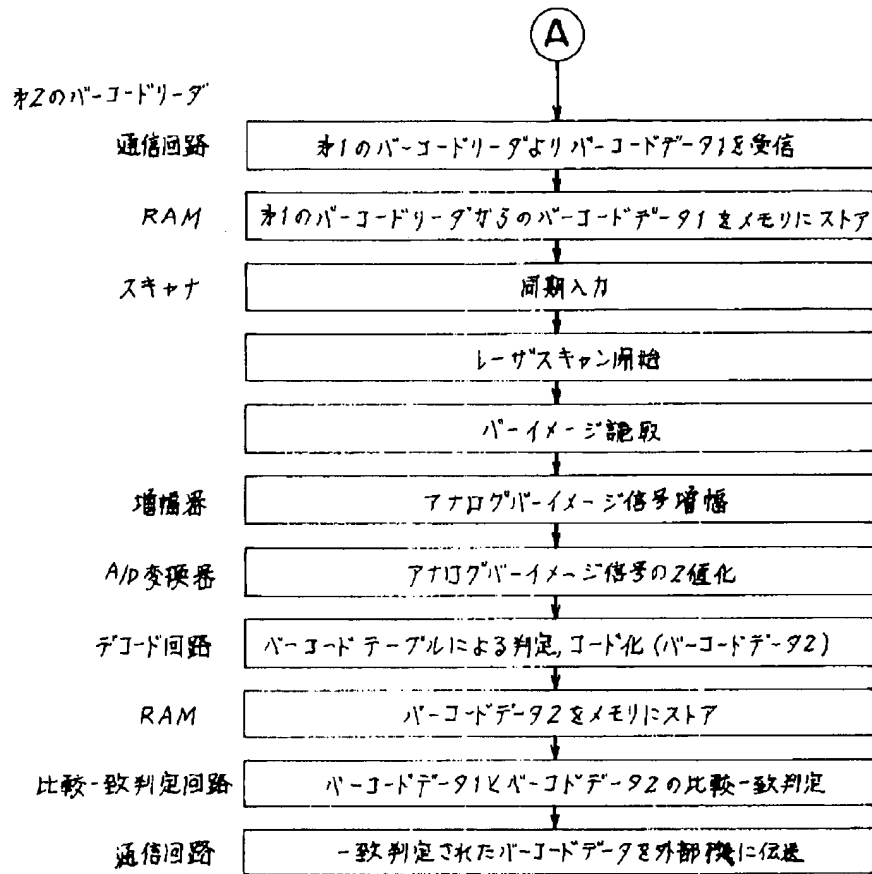 A
第2のバーコードリーダ
通信回路 第1のバーコードリーダよりバーコードデータ1を受信
RAM 第1のバーコードリーダからのバーコードデータ1をメモリにストア
スキャナ 同期入力
レーザスキャン開始
バーイメージ読取
増幅器 アナログバーイメージ信号増幅
A/D変換器 アナログバーイメージ信号の2値化
デコード回路 バーコードテーブルによる判定,コード化(バーコードデータ2)
RAM バーコードデータ2をメモリにストア
比較一致判定回路 バーコードデータ1とバーコードデータ2の比較一致判定
通信回路 一致判定されたバーコードデータを外部機に伝送